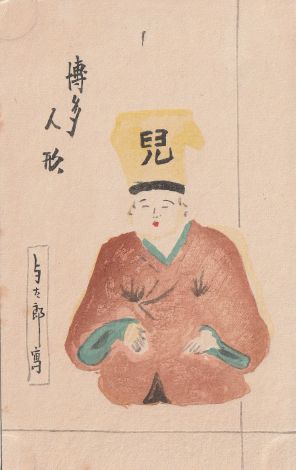 博多
人形
兒
与太郎寫